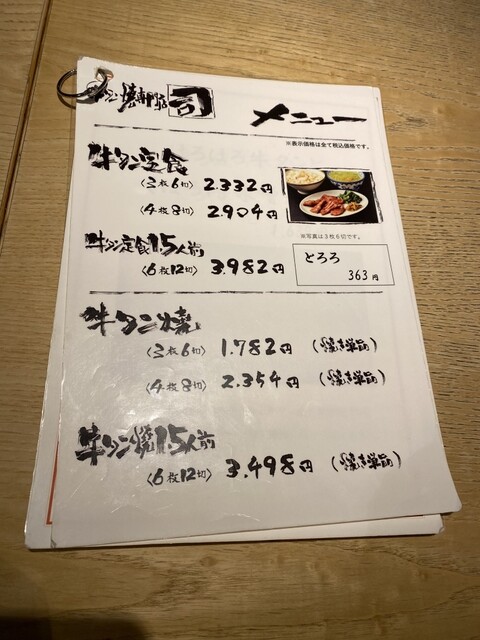 牛タン焼専門店 司
メニュー
※表示価格は全て税込価格です。
牛タン定食
〈3枚6切〉 2.332円
〈4枚8切〉 2.904円
※写真は3枚6切です。
牛タン定食1.5人前
〈6枚12切〉 3.982円
とろろ
363円
牛タン焼
〈3枚6切〉 1.782円 (焼き単品)
〈4枚8切〉 2.354円 (焼き単品)
牛タン焼1.5人前
〈6枚12切〉 3.498円 (焼き単品)